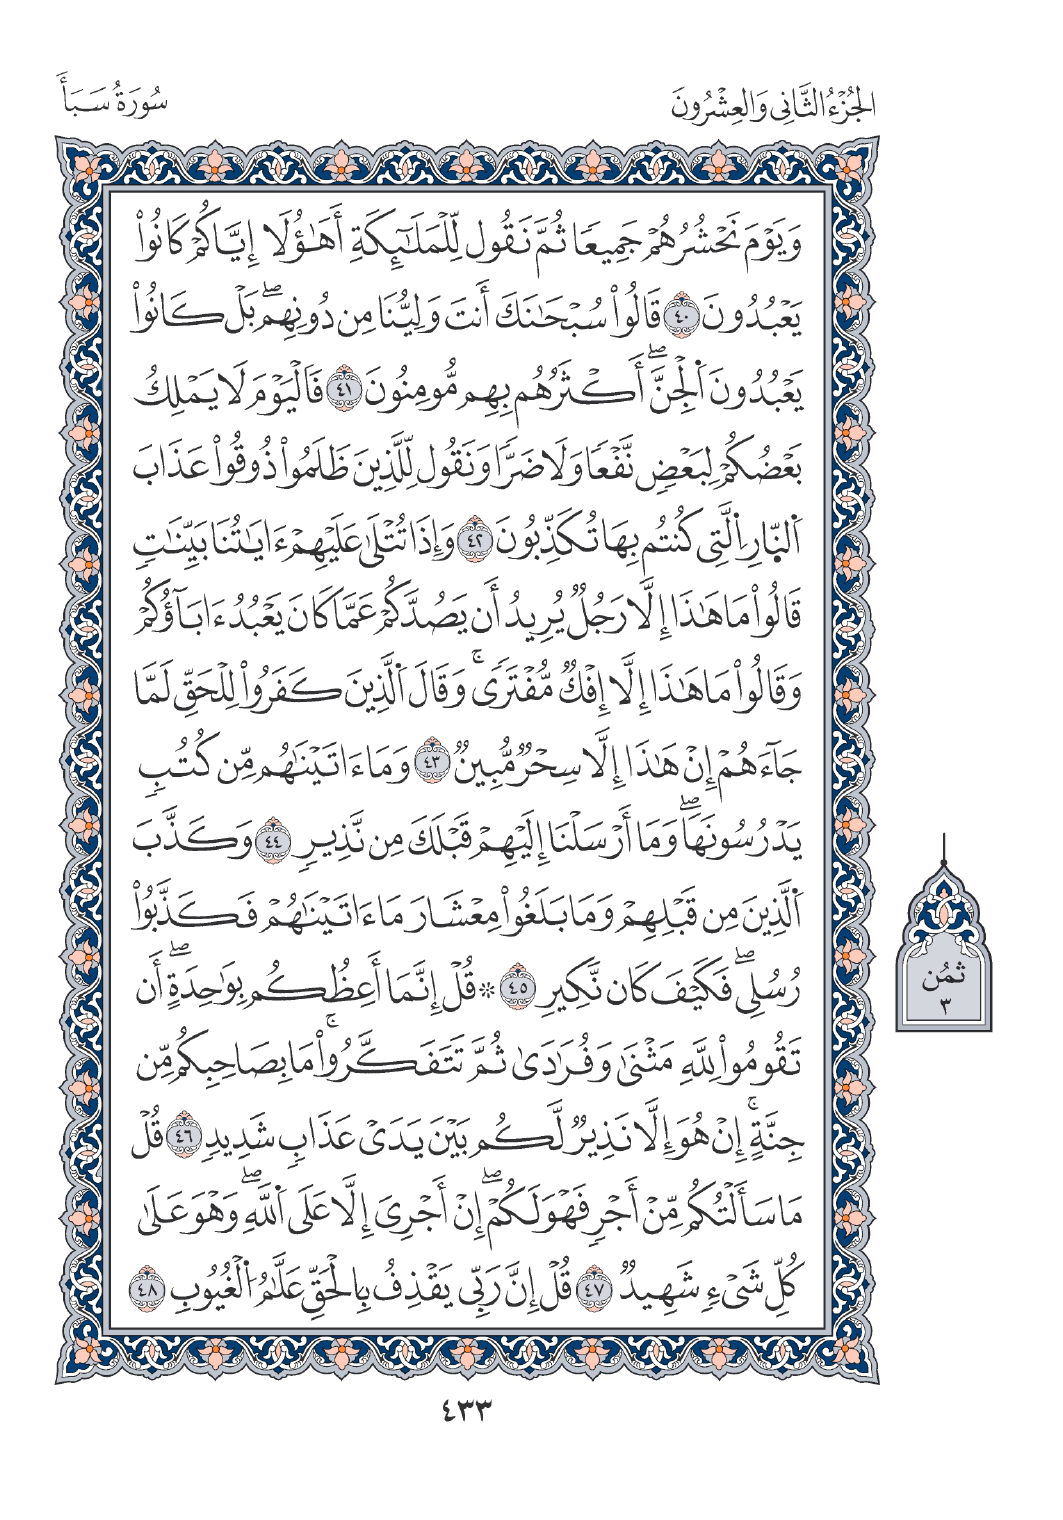 الجُزْءُ الثَّانِي وَالعِشْرُونَ
سُورَةُ سَبَأ
وَيَوْمَ نَحْشُرُهُمْ جَمِيعٗا ثُمَّ نَقُولُ لِلْمَلَٰٓئِكَةِ أَهَٰؤُلَا إِيَّاكُمْ كَانُواْ
يَعْبُدُونَ ٤٠ قَالُواْ سُبْحَٰنَكَ أَنتَ وَلِيُّنَا مِن دُونِهِمۖ بَلْ كَانُواْ
يَعْبُدُونَ اَ۬لْجِنَّۖ أَكْثَرُهُم بِهِم مُّومِنُونَ ٤١ فَالْيَوْمَ لَا يَمْلِكُ
بَعْضُكُمْ لِبَعْضٖ نَّفْعٗا وَلَا ضَرّٗا وَنَقُولُ لِلَّذِينَ ظَلَمُواْ ذُوقُواْ عَذَابَ
اَ۬لنّ۪ارِ اِ۬لَّتِي كُنتُم بِهَا تُكَذِّبُونَ ٤٢ وَإِذَا تُتْلَىٰ عَلَيْهِمْ ءَايَٰتُنَا بَيِّنَٰتٖ
قَالُواْ مَا هَٰذَا إِلَّا رَجُلٞ يُرِيدُ أَن يَصُدَّكُمْ عَمَّا كَانَ يَعْبُدُ ءَابَآؤُكُمْ
وَقَالُواْ مَا هَٰذَا إِلَّا إِفْكٞ مُّفْتَرٗىۚ وَقَالَ اَ۬لَّذِينَ كَفَرُواْ لِلْحَقِّ لَمَّا
جَآءَهُمْ إِنْ هَٰذَا إِلَّا سِحْرٞ مُّبِينٞ ٤٣ وَمَا ءَاتَيْنَٰهُم مِّن كُتُبٖ
يَدْرُسُونَهَاۖ وَمَا أَرْسَلْنَا إِلَيْهِمْ قَبْلَكَ مِن نَّذِيرٖ ٤٤ وَكَذَّبَ
اَ۬لَّذِينَ مِن قَبْلِهِمْ وَمَا بَلَغُواْ مِعْشَارَ مَا ءَاتَيْنَٰهُمْ فَكَذَّبُواْ
رُسُلِيۖ فَكَيْفَ كَانَ نَّكِيرِ ٤٥ ۞ قُلْ إِنَّمَا أَعِظُكُم بِوَٰحِدَةٍۖ أَن
تَقُومُواْ لِلهِ مَثْنَىٰ وَفُرَٰدَىٰ ثُمَّ تَتَفَكَّرُواْۚ مَا بِصَاحِبِكُم مِّن
جِنَّةٍۚ إِنْ هُوَ إِلَّا نَذِيرٞ لَّكُم بَيْنَ يَدَيْ عَذَابٖ شَدِيدٖ ٤٦ قُلْ
مَا سَأَلْتُكُم مِّنْ أَجْرٖ فَهْوَ لَكُمْۖ إِنْ أَجْرِيَ إِلَّا عَلَى اَ۬للَّهِۖ وَهْوَ عَلَىٰ
كُلِّ شَيْءٖ شَهِيدٞ ٤٧ قُلْ إِنَّ رَبِّي يَقْذِفُ بِالْحَقِّ عَلَّٰمُ اُ۬لْغُيُوبِ ٤٨
ثُمُن
٣
٤٣٣